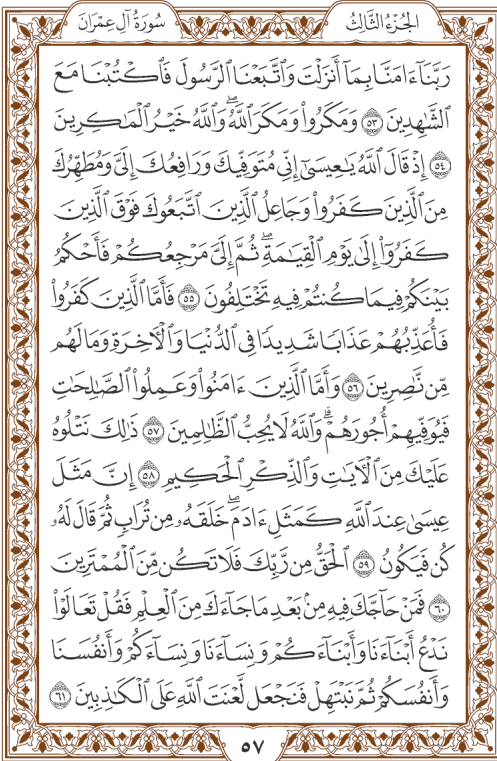 الجزء الثالث
سورة آل عمران
رَبَّنَآ ءَامَنَّا بِمَآ أَنزَلۡتَ وَٱتَّبَعۡنَا ٱلرَّسُولَ فَٱكۡتُبۡنَا مَعَ
ٱلشَّٰهِدِينَ ٥٣ وَمَكَرُواْ وَمَكَرَ ٱللَّهُۖ وَٱللَّهُ خَيۡرُ ٱلۡمَٰكِرِينَ
٥٤ إِذۡ قَالَ ٱللَّهُ يَٰعِيسَىٰٓ إِنِّي مُتَوَفِّيكَ وَرَافِعُكَ إِلَيَّ وَمُطَهِّرُكَ
مِنَ ٱلَّذِينَ كَفَرُواْ وَجَاعِلُ ٱلَّذِينَ ٱتَّبَعُوكَ فَوۡقَ ٱلَّذِينَ
كَفَرُوٓاْ إِلَىٰ يَوۡمِ ٱلۡقِيَٰمَةِۖ ثُمَّ إِلَيَّ مَرۡجِعُكُمۡ فَأَحۡكُمُ
بَيۡنَكُمۡ فِيمَا كُنتُمۡ فِيهِ تَخۡتَلِفُونَ ٥٥ فَأَمَّا ٱلَّذِينَ كَفَرُواْ
فَأُعَذِّبُهُمۡ عَذَابٗا شَدِيدٗا فِي ٱلدُّنۡيَا وَٱلۡأٓخِرَةِ وَمَا لَهُم
مِّن نَّٰصِرِينَ ٥٦ وَأَمَّا ٱلَّذِينَ ءَامَنُواْ وَعَمِلُواْ ٱلصَّٰلِحَٰتِ
فَيُوَفِّيهِمۡ أُجُورَهُمۡۗ وَٱللَّهُ لَا يُحِبُّ ٱلظَّٰلِمِينَ ٥٧ ذَٰلِكَ نَتۡلُوهُ
عَلَيۡكَ مِنَ ٱلۡأٓيَٰتِ وَٱلذِّكۡرِ ٱلۡحَكِيمِ ٥٨ إِنَّ مَثَلَ
عِيسَىٰ عِندَ ٱللَّهِ كَمَثَلِ ءَادَمَۖ خَلَقَهُۥ مِن تُرَابٖ ثُمَّ قَالَ لَهُۥ
كُن فَيَكُونُ ٥٩ ٱلۡحَقُّ مِن رَّبِّكَ فَلَا تَكُن مِّنَ ٱلۡمُمۡتَرِينَ
٦٠ فَمَنۡ حَآجَّكَ فِيهِ مِنۢ بَعۡدِ مَا جَآءَكَ مِنَ ٱلۡعِلۡمِ فَقُلۡ تَعَالَوۡاْ
نَدۡعُ أَبۡنَآءَنَا وَأَبۡنَآءَكُمۡ وَنِسَآءَنَا وَنِسَآءَكُمۡ وَأَنفُسَنَا
وَأَنفُسَكُمۡ ثُمَّ نَبۡتَهِلۡ فَنَجۡعَل لَّعۡنَتَ ٱللَّهِ عَلَى ٱلۡكَٰذِبِينَ ٦١
٥٧